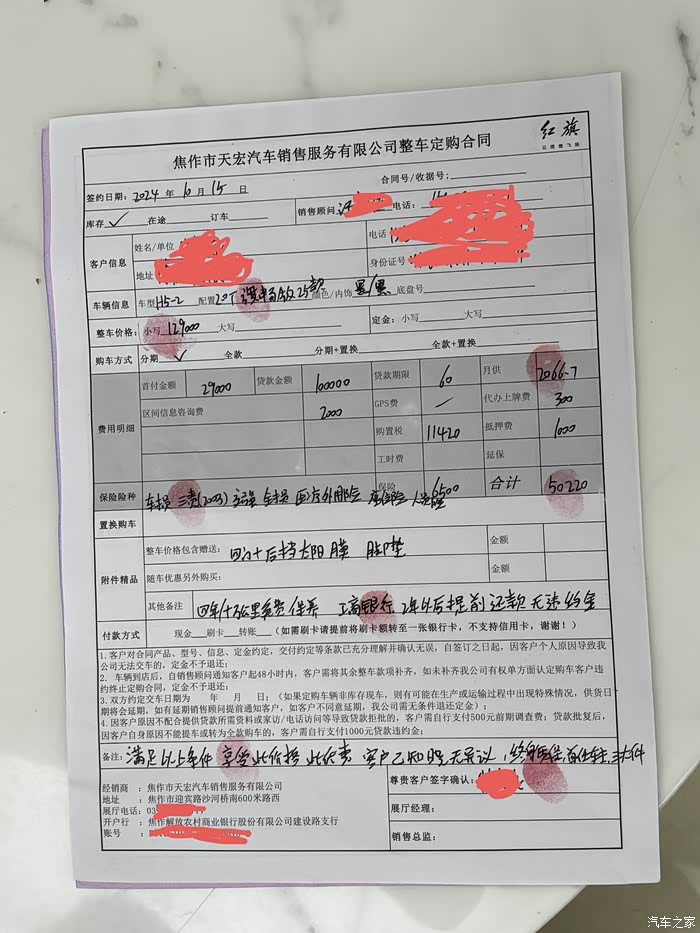 红旗
让理想飞扬
焦作市天宏汽车销售服务有限公司整车定购合同
签约日期: 2024 年 10 月 15 日 合同号/收据号:
库存 ✓ 在途 订车 销售顾问 电话:
客户信息 姓名/单位 电话
地址 身份证号
车辆信息 车型 H5-2 配置 20T 25款 颜色/内饰 黑/黑 底盘号
整车价格: 小写 129000 大写 定金: 小写 大写
购车方式 分期 ✓ 全款 分期+置换 全款+置换
费用明细 首付金额 29000 贷款金额 100000 贷款期限 60 月供 2066.7
区间信息咨询费 2000 GPS费 — 代办上牌费 300
购置税 11420 抵押费 1000
工时费 延保
保险险种 车损 三责(200万) 交强 医疗外用险 座位险 保险 6500 合计 50220
置换购车
附件精品 整车价格包含赠送: 后挡太阳膜 脚垫 金额
随车优惠另外购买: 金额
其他备注 四年/十万公里免费保养 工商银行 2年以后提前还款无违约金
付款方式 现金 刷卡 转账 (如需刷卡请提前将刷卡额转至一张银行卡,不支持信用卡,谢谢!)
1.客户对合同产品、型号、信息、定金约定,交付约定等条款已充分理解并确认无误,自签订之日起,因客户个人原因导致我
公司无法交车的,定金不予退还;
2. 车辆到店后,自销售顾问通知客户起48小时内,客户需将其余整车款项补齐,如未补齐我公司有权单方面认定购车客户违
约终止定购合同,定金不予退还;
3.双方约定交车日期为 年 月 日;(如果定购车辆非库存现车,则有可能在生产或运输过程中出现特殊情况,供货日
期将会延期,如有延期销售顾问提前通知客户,如客户不同意延期,我公司需无条件退还定金);
4.因客户原因不配合提供贷款所需资料或家访/电话访问等导致贷款拒批的,客户需自行支付500元前期调查费;贷款批复后,
因客户自身原因不能提车或转为全款购车的,客户需自行支付1000元贷款违约金;
备注: 满足以上条件 享受此价格 此付表 客户已知晓无异议,终身质保,首任车主
经销商 : 焦作市天宏汽车销售服务有限公司 尊贵客户签字确认:
地址 : 焦作市迎宾路沙河桥南600米路西
展厅电话: 03 展厅经理:
开户行 : 焦作解放农村商业银行股份有限公司建设路支行
账号 : 销售总监:
汽车之家